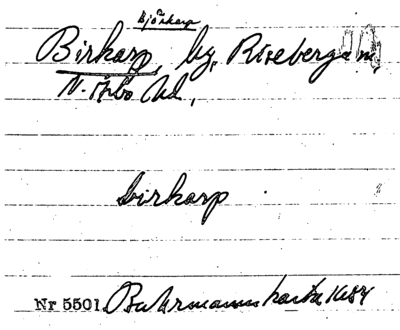 Björkarp
Birkarp, by, Riseberga
N. Åsbo hd,
birkarp
Nr 5501. Buhrmanns karta 1684